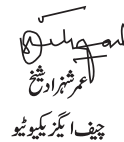 عمر شہزاد شیخ
چیف ایگزیکیوٹیو